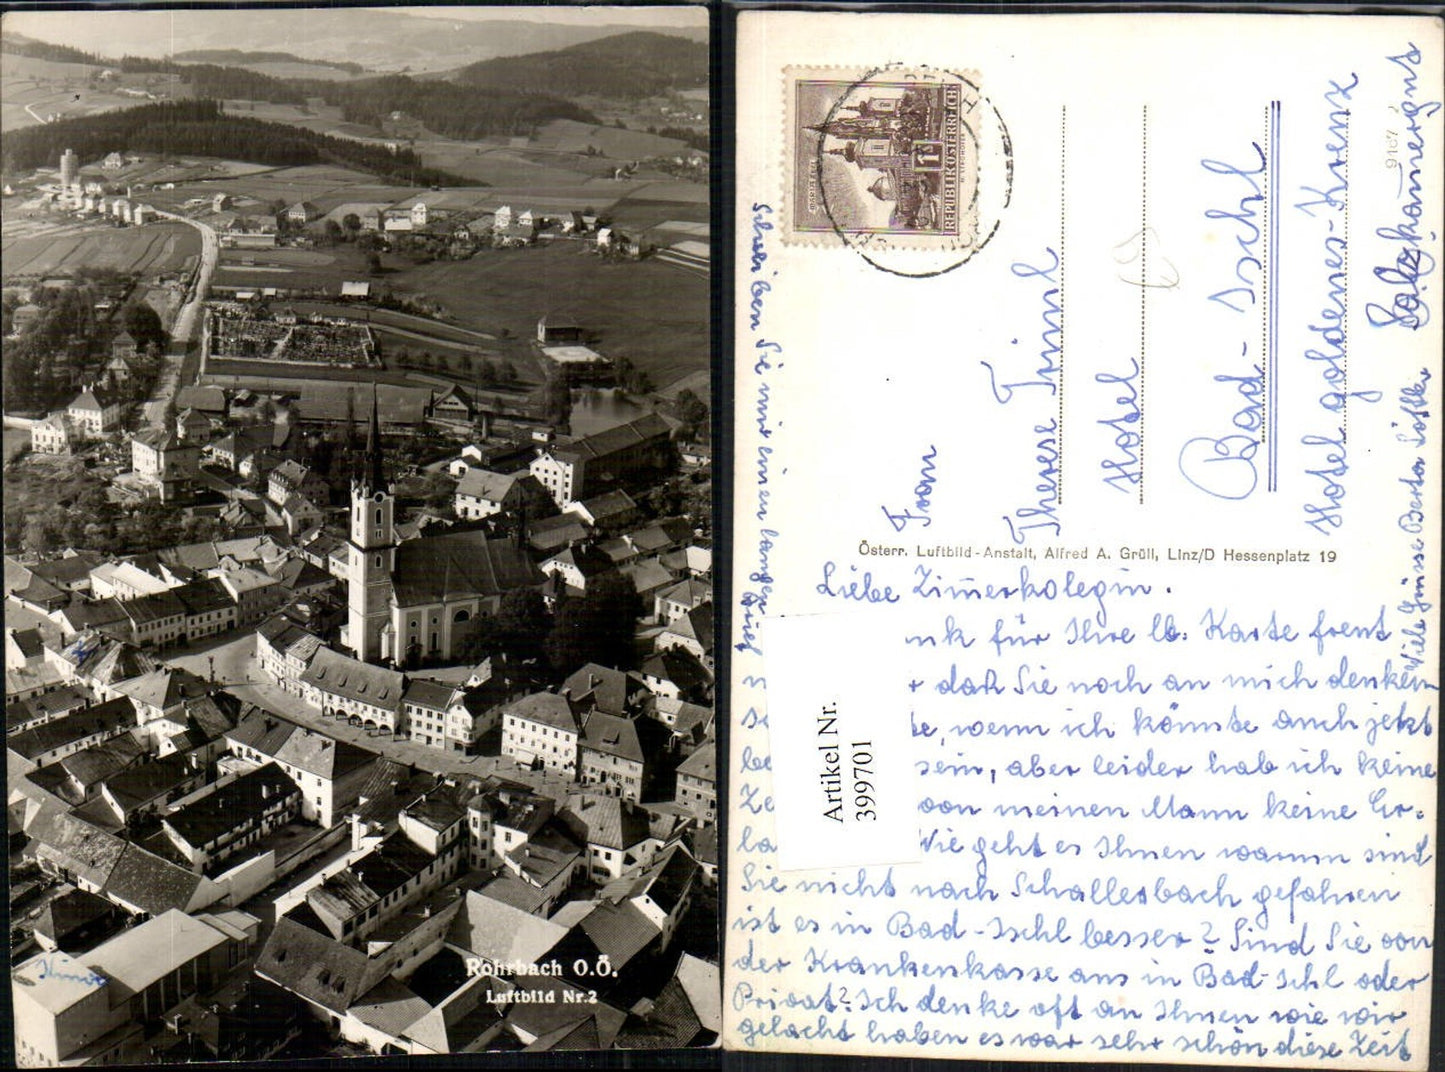 Kino
Rohrbach O.Ö.
Luftbild Nr.2
REPUBLIK ÖSTERREICH
1 S
MARIAZELL
9167 2
Frau
Therese Feiml
Hotel
Bad-Ischl
Hotel goldenes-Kreuz
Salzkammergut
Österr. Luftbild-Anstalt, Alfred A. Grüll, Linz/D Hessenplatz 19
Liebe Zimerkolegin.
nk für Ihre lb. Karte freut
r daß Sie noch an mich denken
te, wenn ich könnte auch jetzt
sein, aber leider hab ich keine
von meinen Mann keine Er-
Wie geht es Ihnen warum sind
Sie nicht nach Schallerbach gefahren
ist es in Bad-Ischl besser? Sind Sie von
der Krankenkasse aus in Bad-Ischl oder
Privat? Ich denke oft an Ihnen wie wir
gelacht haben es war sehr schön diese Zeit
Schreiben Sie mir einen langen Brief
Viele Grüsse Berta
Artikel Nr.
399701